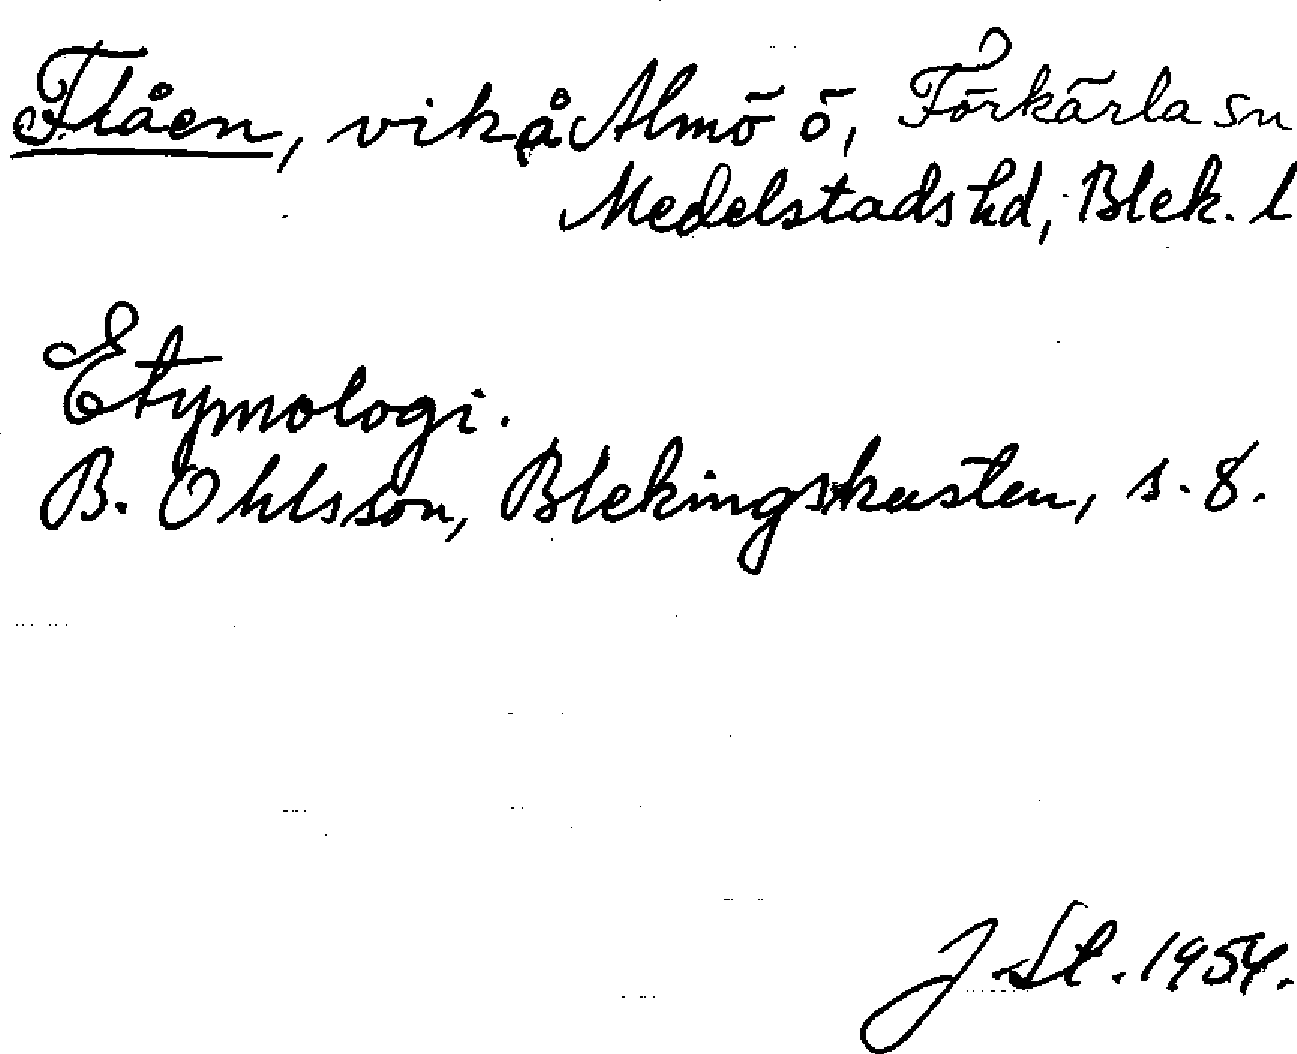 Flåen, vik å Almö ö, Förkärla sn
Medelstads hd, Blek. l
Etymologi.
B. Ohlsson, Blekingskusten, s. 8.
J. St. 1954.